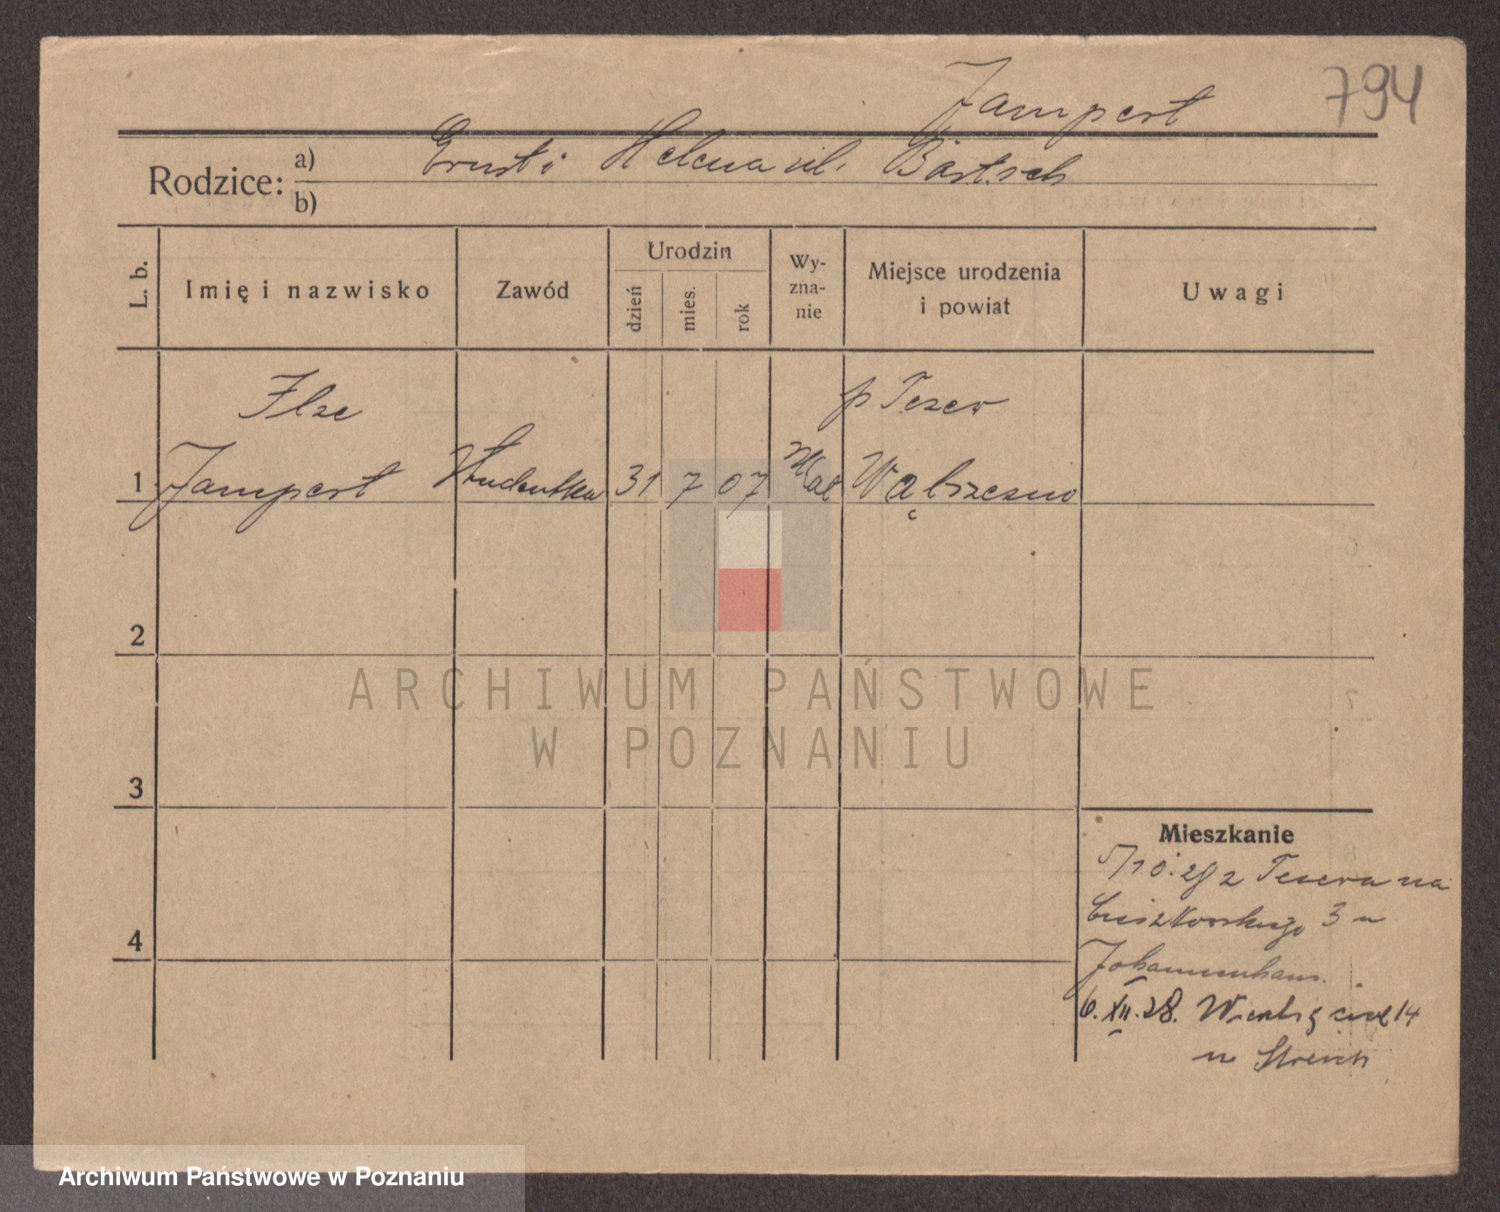 Jampert 794
Rodzice: a) Ernst i Helena ul. Bartsch
b)
L. b. Imię i nazwisko Zawód Urodzin dzień mies. rok Wy-zna-nie Miejsce urodzenia i powiat Uwagi
Ilse p Tczew
1 Jampert Studentka 31 7 07 Wąbrzezno
2
ARCHIWUM PAŃSTWOWE
W POZNANIU
3
Mieszkanie
5/10.28 z Tczewa na
3 u
4
Johannenhaus.
6.XII.28. 14
u
Archiwum Państwowe w Poznaniu